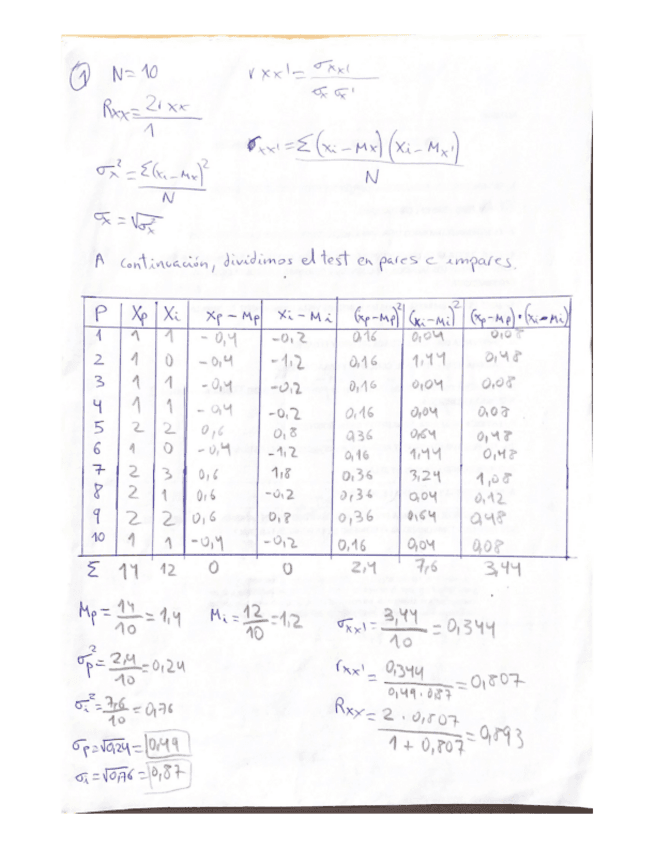 ① N=10
r xx' = σxx' / σx σx'
Rxx = 2rxx / 1
σx² = Σ(xi - Mx)² / N
σxx' = Σ(xi - Mx)(Xi - Mx') / N
σx = √σx²
A continuación, dividimos el test en pares e impares.
P Xp Xi Xp - Mp Xi - Mi (xp-Mp)² (xi-Mi)² (xp-Mp)·(xi-Mi)
1 1 1 -0,4 -0,2 0,16 0,04 0,08
2 1 0 -0,4 -1,2 0,16 1,44 0,48
3 1 1 -0,4 -0,2 0,16 0,04 0,08
4 1 1 -0,4 -0,2 0,16 0,04 0,08
5 2 2 0,6 0,8 0,36 0,64 0,48
6 1 0 -0,4 -1,2 0,16 1,44 0,48
7 2 3 0,6 1,8 0,36 3,24 1,08
8 2 1 0,6 -0,2 0,36 0,04 0,12
9 2 2 0,6 0,8 0,36 0,64 0,48
10 1 1 -0,4 -0,2 0,16 0,04 0,08
Σ 14 12 0 0 2,4 7,6 3,44
Mp = 14/10 = 1,4
Mi = 12/10 = 1,2
σxx' = 3,44/10 = 0,344
σp² = 2,4/10 = 0,24
rxx' = 0,344 / 0,49 · 0,87 = 0,807
σi² = 7,6/10 = 0,76
Rxx = 2 · 0,807 / 1 + 0,807 = 0,893
σp = √0,24 = 0,49
σi = √0,76 = 0,87